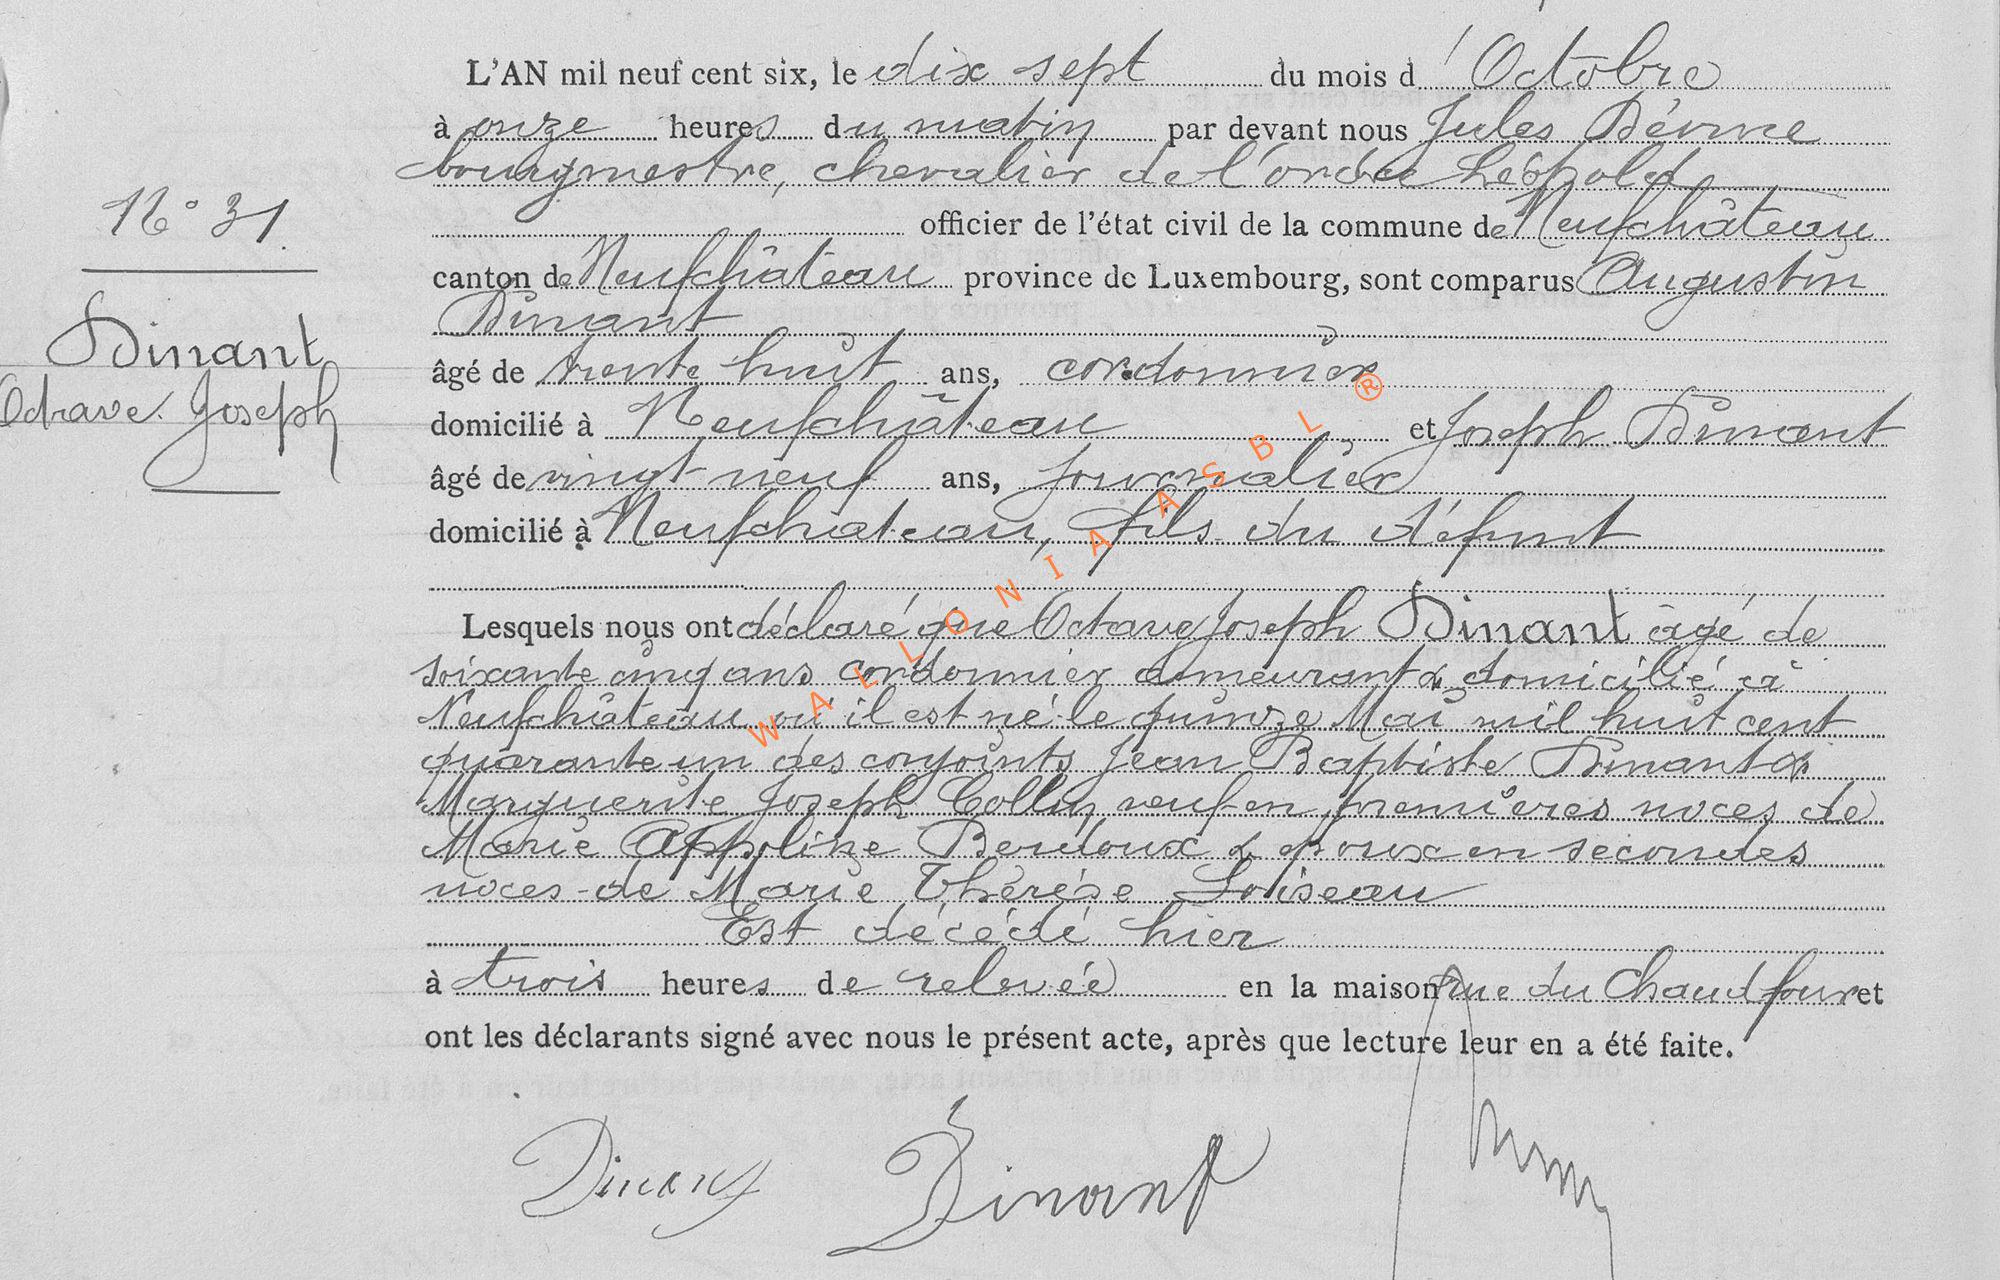 L'AN mil neuf cent six, le dix sept du mois d'Octobre
à onze heures du matin par devant nous Jules
bourgmestre, chevalier de l'ordre Léopold
officier de l'état civil de la commune de Neufchâteau
N° 31.
canton de Neufchâteau province de Luxembourg, sont comparus Augustin
Dinant
Dinant
Octave Joseph
âgé de trente huit ans, cordonnier
domicilié à Neufchâteau et Joseph Dinant
âgé de vingt-neuf ans, journalier
domicilié à Neufchâteau, fils du défunt
Lesquels nous ont déclaré que Octave Joseph Dinant âgé de
soixante cinq ans cordonnier demeurant & domicilié à
Neufchâteau où il est né le quinze Mai mil huit cent
quarante un des conjoints Jean Baptiste Dinant &
Marguerite Joseph Collin, veuf en premières noces de
Marie Appoline & époux en secondes
noces de Marie Thérèse Loiseau
Est décédé hier
à trois heures de relevée en la maison rue du Chaudfour et
ont les déclarants signé avec nous le présent acte, après que lecture leur en a été faite.
Dinant Dinant
WALLONIA ASBL ®